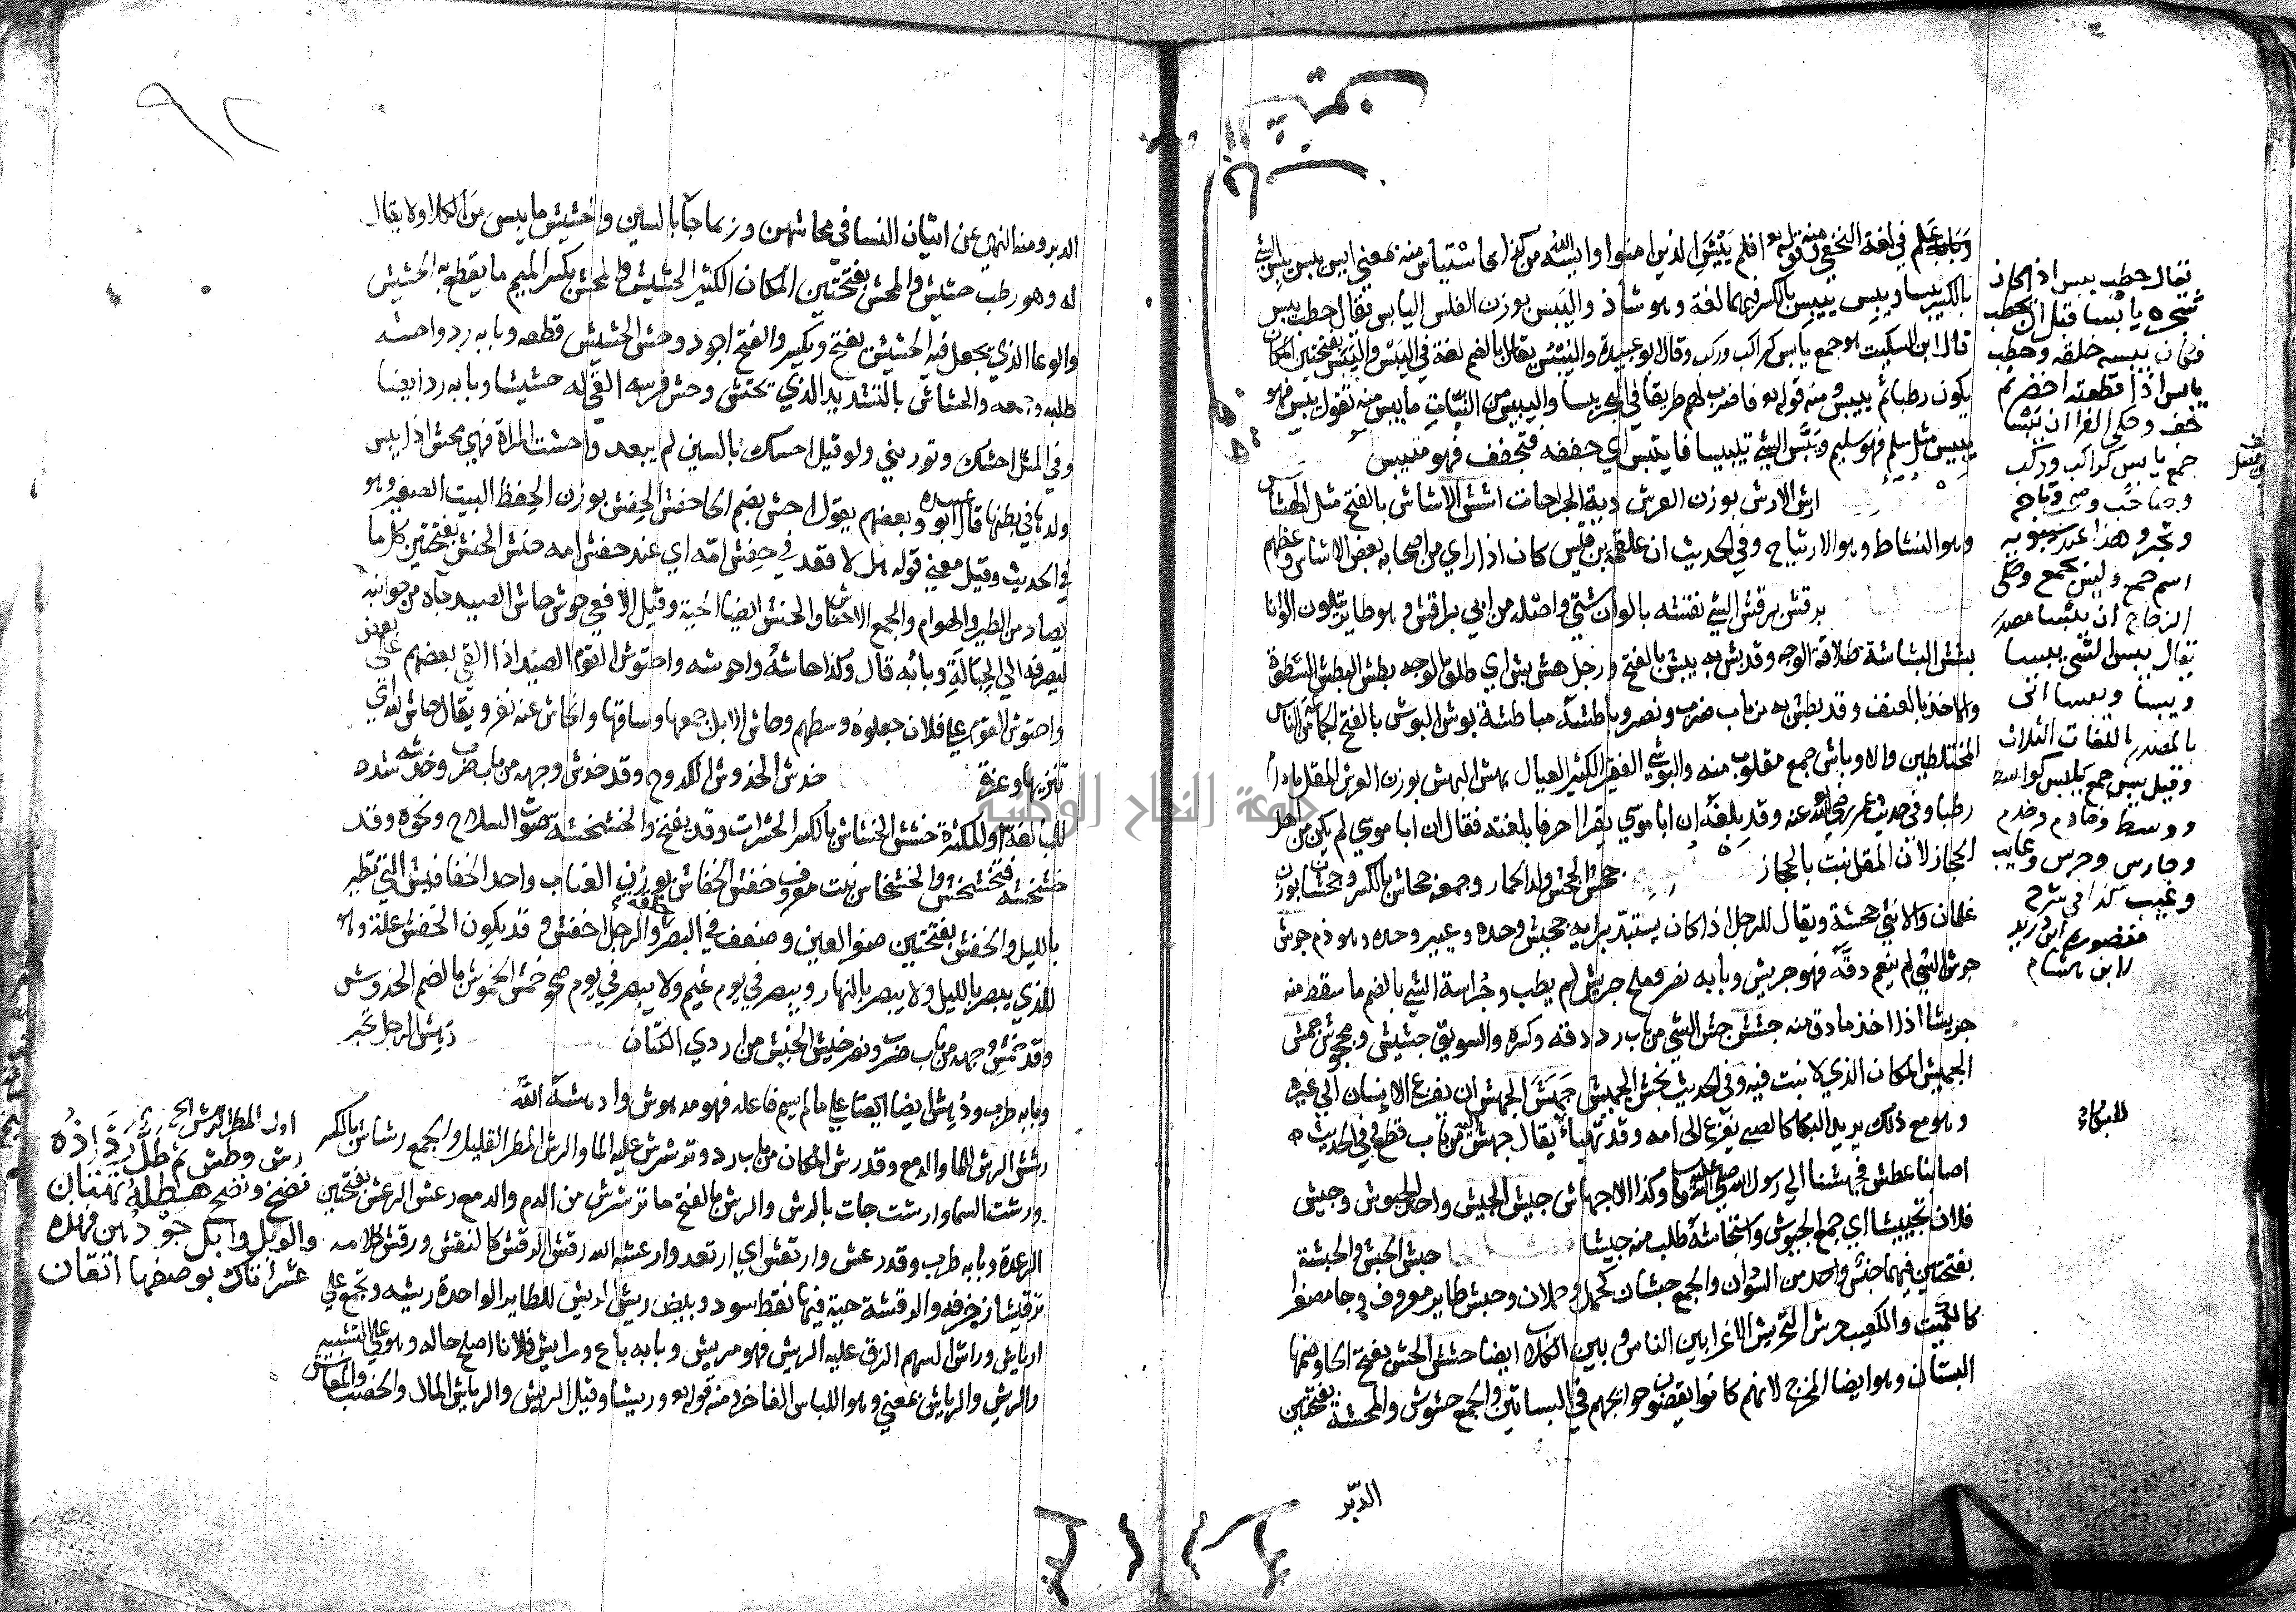 وبابه علم في لغة النخعي ومنه قوله تعالى افلم ييئس الذين امنوا وايسه الله من كذا اي استياس منه بمعنى ايس يبس يبس الشي
بالكسر يبسا ويبس ييبس بالكسر فيهما لغة وهو شاذ واليبس بوزن الفلس اليابس يقال حطب يبس
قال ابن السكيت هو جمع يابس كراكب وركب وقال ابو عبيدة واليبس يقال بالضم لغة في اليبس واليبس بفتحتين المكان
يكون رطبا ثم ييبس ومنه قوله تعالى فاضرب لهم طريقا في البحر يبسا واليبيس من النبات ما يبس منه تقول يبس فهو
يبيس مثل سلم فهو سليم ويبس الشي تيبيسا فايتبس اي جففه فتجفف فهو متيبس
ارش الارش بوزن العرش دية الجراحات اشش الاشاش بالفتح مثل الهشاش
وهو النشاط وهو الارتياح وفي الحديث ان علقمة بن قيس كان اذا راي من اصحابه بعض الاشاش وعظهم
برقش برقش الشي نقشه بالوان شتي واصله من ابي براقش وهو طاير يتلون الوانا
بشش البشاشة طلاقة الوجه وقد بش به يبش بالفتح ورجل هش بش اي طلق الوجه بطش البطش السطوة
والاخذ بالعنف وقد بطش به من باب ضرب ونصر وباطشه مباطشة بوش البوش بالفتح الجماعة من الناس
المختلطين والاوباش جمع مقلوب منه والبوشي الفقير الكثير العيال بهش البهش بوزن العرش المقل مادام
رطبا وفي حديث عمر رضي الله عنه وقد بلغه ان ابا موسي يقرا حرفا بلغته فقال ان ابا موسي لم يكن من اهل
الحجاز لان المقل ينبت بالحجاز جحش الجحش ولد الحمار وجمعه جحاش بالكسر وجحشان بوزن
غلمان والانثي جحشة ويقال للرجل اذا كان يستبد برايه جحيش وحده وعيير وحده وهو ذم جرش
جرش الشي لم ينعم دقه فهو جريش وبابه نصر وملح جريش لم يطب وجراشة الشي بالضم ما سقط منه
جريشا اذا اخذ ما دق منه جشش جش الشي من باب رد دقه وكسره والسويق جشيش ومجشوش جمش
الجميش المكان الذي لا نبت فيه وفي الحديث بخبت الجميش جهش الجهش ان يفزع الانسان الي غيره
وهو مع ذلك يريد البكا كالصبي يفزع الى امه وقد تهيا للبكاء يقال جهش اليه من باب قطع وفي الحديث
اصابنا عطش فجهشنا الي رسول الله صلى الله عليه وسلم وكذا الاجهاش جيش الجيش واحد الجيوش وجيش
فلان تجييشا اي جمع الجيوش واستجاشه طلب منه جيشا حبش الحبش والحبشة
بفتحتين فيهما جنس واحد من السودان والجمع حبشان كحمل وحملان وحبيش طاير معروف وجا مصغرا
كالكميت والكعيب حرش التحريش الاغرا بين الناس وبين الكلاب ايضا حشش الحش بفتح الحا وضمها
البستان وهو ايضا المخرج لانهم كانوا يقضون حوايجهم في البساتين والجمع حشوش والمحشة بفتحتين
الدبر
يقال حطب يبس اذا كان
شجره يابسا قبل ان يحطب
فكان يبسه خلقة وحطب
يابس اذا قطعته اخضر ثم
جف وحكى الفرا ان يبسا
جمع يابس كراكب وركب
وصاحب وصحب وتاجر
وتجر وهذا عند سيبويه
اسم جمع وليس بجمع وحكى
الزجاج ان يبسا مصدر
يقال يبس الشي ييبس
ويبسا ويبسا اتى
بالمصدر باللغات الثلاث
وقيل يبس جمع يابس كواسط
ووسط وخادم وخدم
وحارس وحرس وغايب
وغيب كذا في شرح
مقصورة ابن دريد
لابن هشام
للبكاء
٩٢
الدبر ومنه النهي عن اتيان النسا في محاشهن وربما جآ بالسين والحشيش ما يبس من الكلا ولا يقال
له وهو رطب حشيش والمحش بفتحتين المكان الكثير الحشيش والمحش بكسر الميم ما يقطع به الحشيش
والوعا الذي يجعل فيه الحشيش يفتح ويكسر والفتح اجود وحش الحشيش قطعه وبابه رد واحتشه
طلبه وجمعه والحشاش بالتشديد الذي يحتش وحش فرسه القى له حشيشا وبابه رد ايضا
وفي المثل احشك وتروثني ولو قيل احسك بالسين لم يبعد واحشت المراة فهي محش اذا يبس
ولدها في بطنها قال ابو عبيدة وبعضهم يقول احش بضم الحا حفش الحفش بوزن الحفظ البيت الصغير وهو
في الحديث وقيل معنى قوله هل لا قعد في حفش امه اي عند حفش امه حنش الحنش بفتحتين كل ما
يصاد من الطير والهوام والجمع الاحناش والحنش ايضا الحية وقيل الافعي حوش حاش الصيد جاه من حواليه
ليصرفه الي الحبالة وبابه قال وكذا احاشه واحوشه واحتوش القوم الصيد اذا القى بعضهم على بعض
واحتوش القوم على فلان جعلوه وسطهم وحاش الابل جمعها وساقها وانحاش عنه نفر ويقال حاش لله اي
تنزيها وعزة خدش الخدوش الكدوح وقد خدش وجهه من باب ضرب وخدشه شدد
للمبالغة او للكثرة خشش الخشاش بالكسر الحشرات وقد يفتح والخشخشة صوت السلاح ونحوه وقد
خشخشه فتخشخش والخشخاش نبت معروف خفش الخفاش بوزن العناب واحد الخفافيش التي تطير
بالليل والخفش بفتحتين صغر العين وضعف في البصر خلقة والرجل اخفش وقد يكون الخفش علة وهو
الذي يبصر بالليل ولا يبصر بالنهار ويبصر في يوم غيم ولا يبصر في يوم صحو خمش الخموش بالضم الخدوش
وقد خمش وجهه من باب ضرب ونصر خيش الخيش من اردي الكتان دهش الرجل تحير
وبابه طرب ودهش ايضا ايضا علي ما لم يسم فاعله فهو مدهوش وادهشه الله
رشش الرش للما والدمع وقد رش المكان من باب رد وترشرش عليه الما والرش المطر القليل والجمع رشاش بالكسر
ورشت السما وارشت جات بالرش والرشاش بالفتح ما ترشرش من الدم والدمع رعش الرعش بفتحتين
الرعدة وبابه طرب وقد رعش وارتعش اي ارتعد وارعشه الله رقش الرقش كالنقش ورقش كلامه
ترقيشا زخرفه والرقشة حية فيها نقط سود وبيض ريش الريش للطاير الواحدة ريشه ويجمع على
ارياش وراش السهم الزق عليه الريش فهو مريش وبابه باع وراش فلانا اصلح حاله وهو علي التشبيه
والريش والرياش بمعنى وهو اللباس الفاخر ومنه قوله تعالى وريشا وقيل الريش والرياش المال والخصب والمعاش
اول المطر الرش
رش وطش ثم طل رذاذه
نضخ ونضح هطله تهتان
والوبل وابل جود هن فهذه
عشر اتاك بوصفها اتقان
جامعة النجاح الوطنية